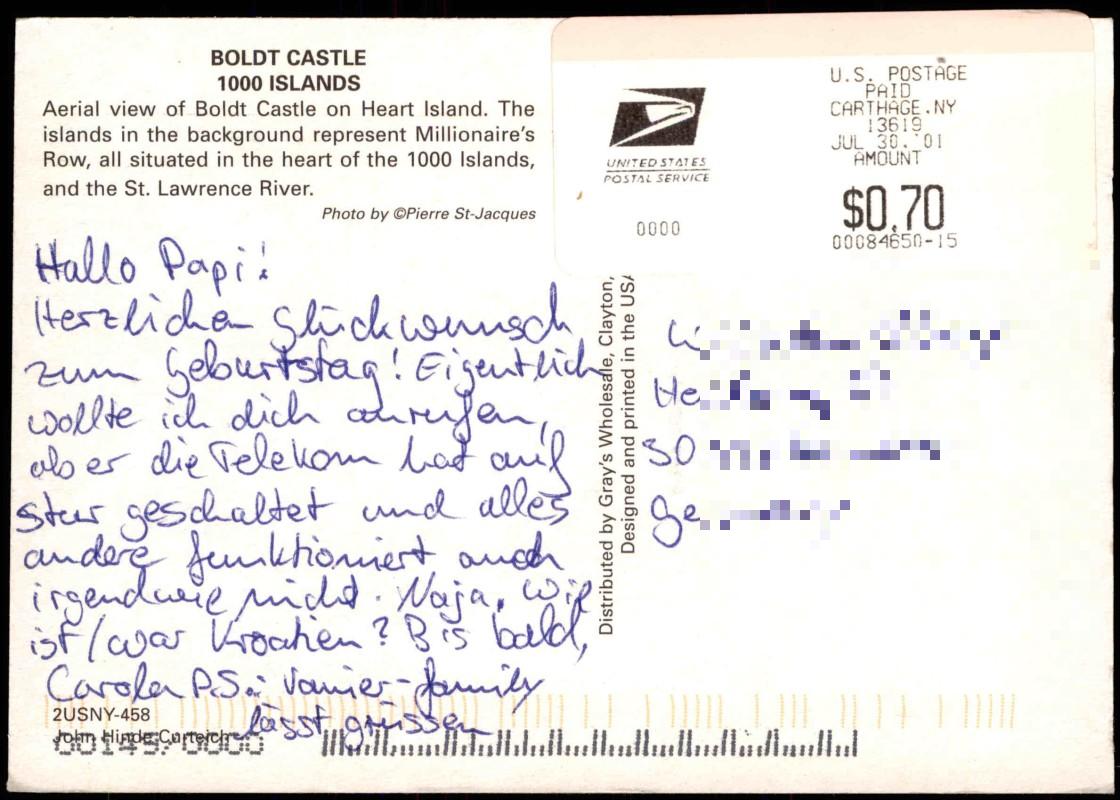 BOLDT CASTLE
1000 ISLANDS
Aerial view of Boldt Castle on Heart Island. The
islands in the background represent Millionaire's
Row, all situated in the heart of the 1000 Islands,
and the St. Lawrence River.
Photo by ©Pierre St-Jacques
UNITED STATES
POSTAL SERVICE
0000
U.S. POSTAGE
PAID
CARTHAGE.NY
13619
JUL 30.'01
AMOUNT
$0.70
00084650-15
Hallo Papi!
Herzlichen Glückwunsch
zum Geburtstag! Eigentlich
wollte ich dich anrufen,
aber die Telekom hat auf
stur geschaltet und alles
andere funktioniert auch
irgendwie nicht. Naja, wie
ist/war Kroatien? Bis bald,
Carola P.S.: Vanier-family
lässt grüssen
Distributed by Gray's Wholesale, Clayton,
Designed and printed in the USA
He
30
Ge
2USNY-458
John Hinde Curteich